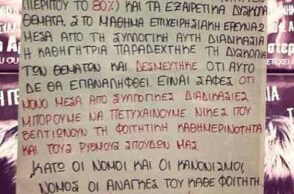 ΠΕΡΙΠΟΥ ΤΟ 80%) ΚΑΙ ΤΑ ΕΞΑΙΡΕΤΙΚΑ ΔΥΣΚΟΛΑ
ΘΕΜΑΤΑ, ΣΤΟ ΜΑΘΗΜΑ ΕΠΙΧΕΙΡΗΣΙΑΚΗ ΕΡΕΥΝΑ
ΜΕΣΑ ΑΠΟ ΤΗ ΣΥΛΛΟΓΙΚΗ ΑΥΤΗ ΔΙΑΔΙΚΑΣΙΑ
Η ΚΑΘΗΓΗΤΡΙΑ ΠΑΡΑΔΕΧΤΗΚΕ ΤΗ ΔΥΣΚΟΛΙΑ
ΤΩΝ ΘΕΜΑΤΩΝ ΚΑΙ ΔΕΣΜΕΥΤΗΚΕ ΟΤΙ ΑΥΤΟ
ΔΕ ΘΑ ΕΠΑΝΑΛΗΦΘΕΙ. ΕΙΝΑΙ ΣΑΦΕΣ ΟΤΙ
ΜΟΝΟ ΜΕΣΑ ΑΠΟ ΣΥΛΛΟΓΙΚΕΣ ΔΙΑΔΙΚΑΣΙΕΣ
ΜΠΟΡΟΥΜΕ ΝΑ ΠΕΤΥΧΑΙΝΟΥΜΕ ΝΙΚΕΣ ΠΟΥ
ΒΕΛΤΙΩΝΟΥΝ ΤΗ ΦΟΙΤΗΤΙΚΗ ΚΑΘΗΜΕΡΙΝΟΤΗΤΑ
ΚΑΙ ΤΟΥΣ ΡΥΘΜΟΥΣ ΣΠΟΥΔΩΝ ΜΑΣ.
ΚΑΤΩ ΟΙ ΝΟΜΟΙ ΚΑΙ ΟΙ ΚΑΝΟΝΙΣΜΟΙ,
ΝΟΜΟΣ ΟΙ ΑΝΑΓΚΕΣ ΤΟΥ ΚΑΘΕ ΦΟΙΤΗΤΗ